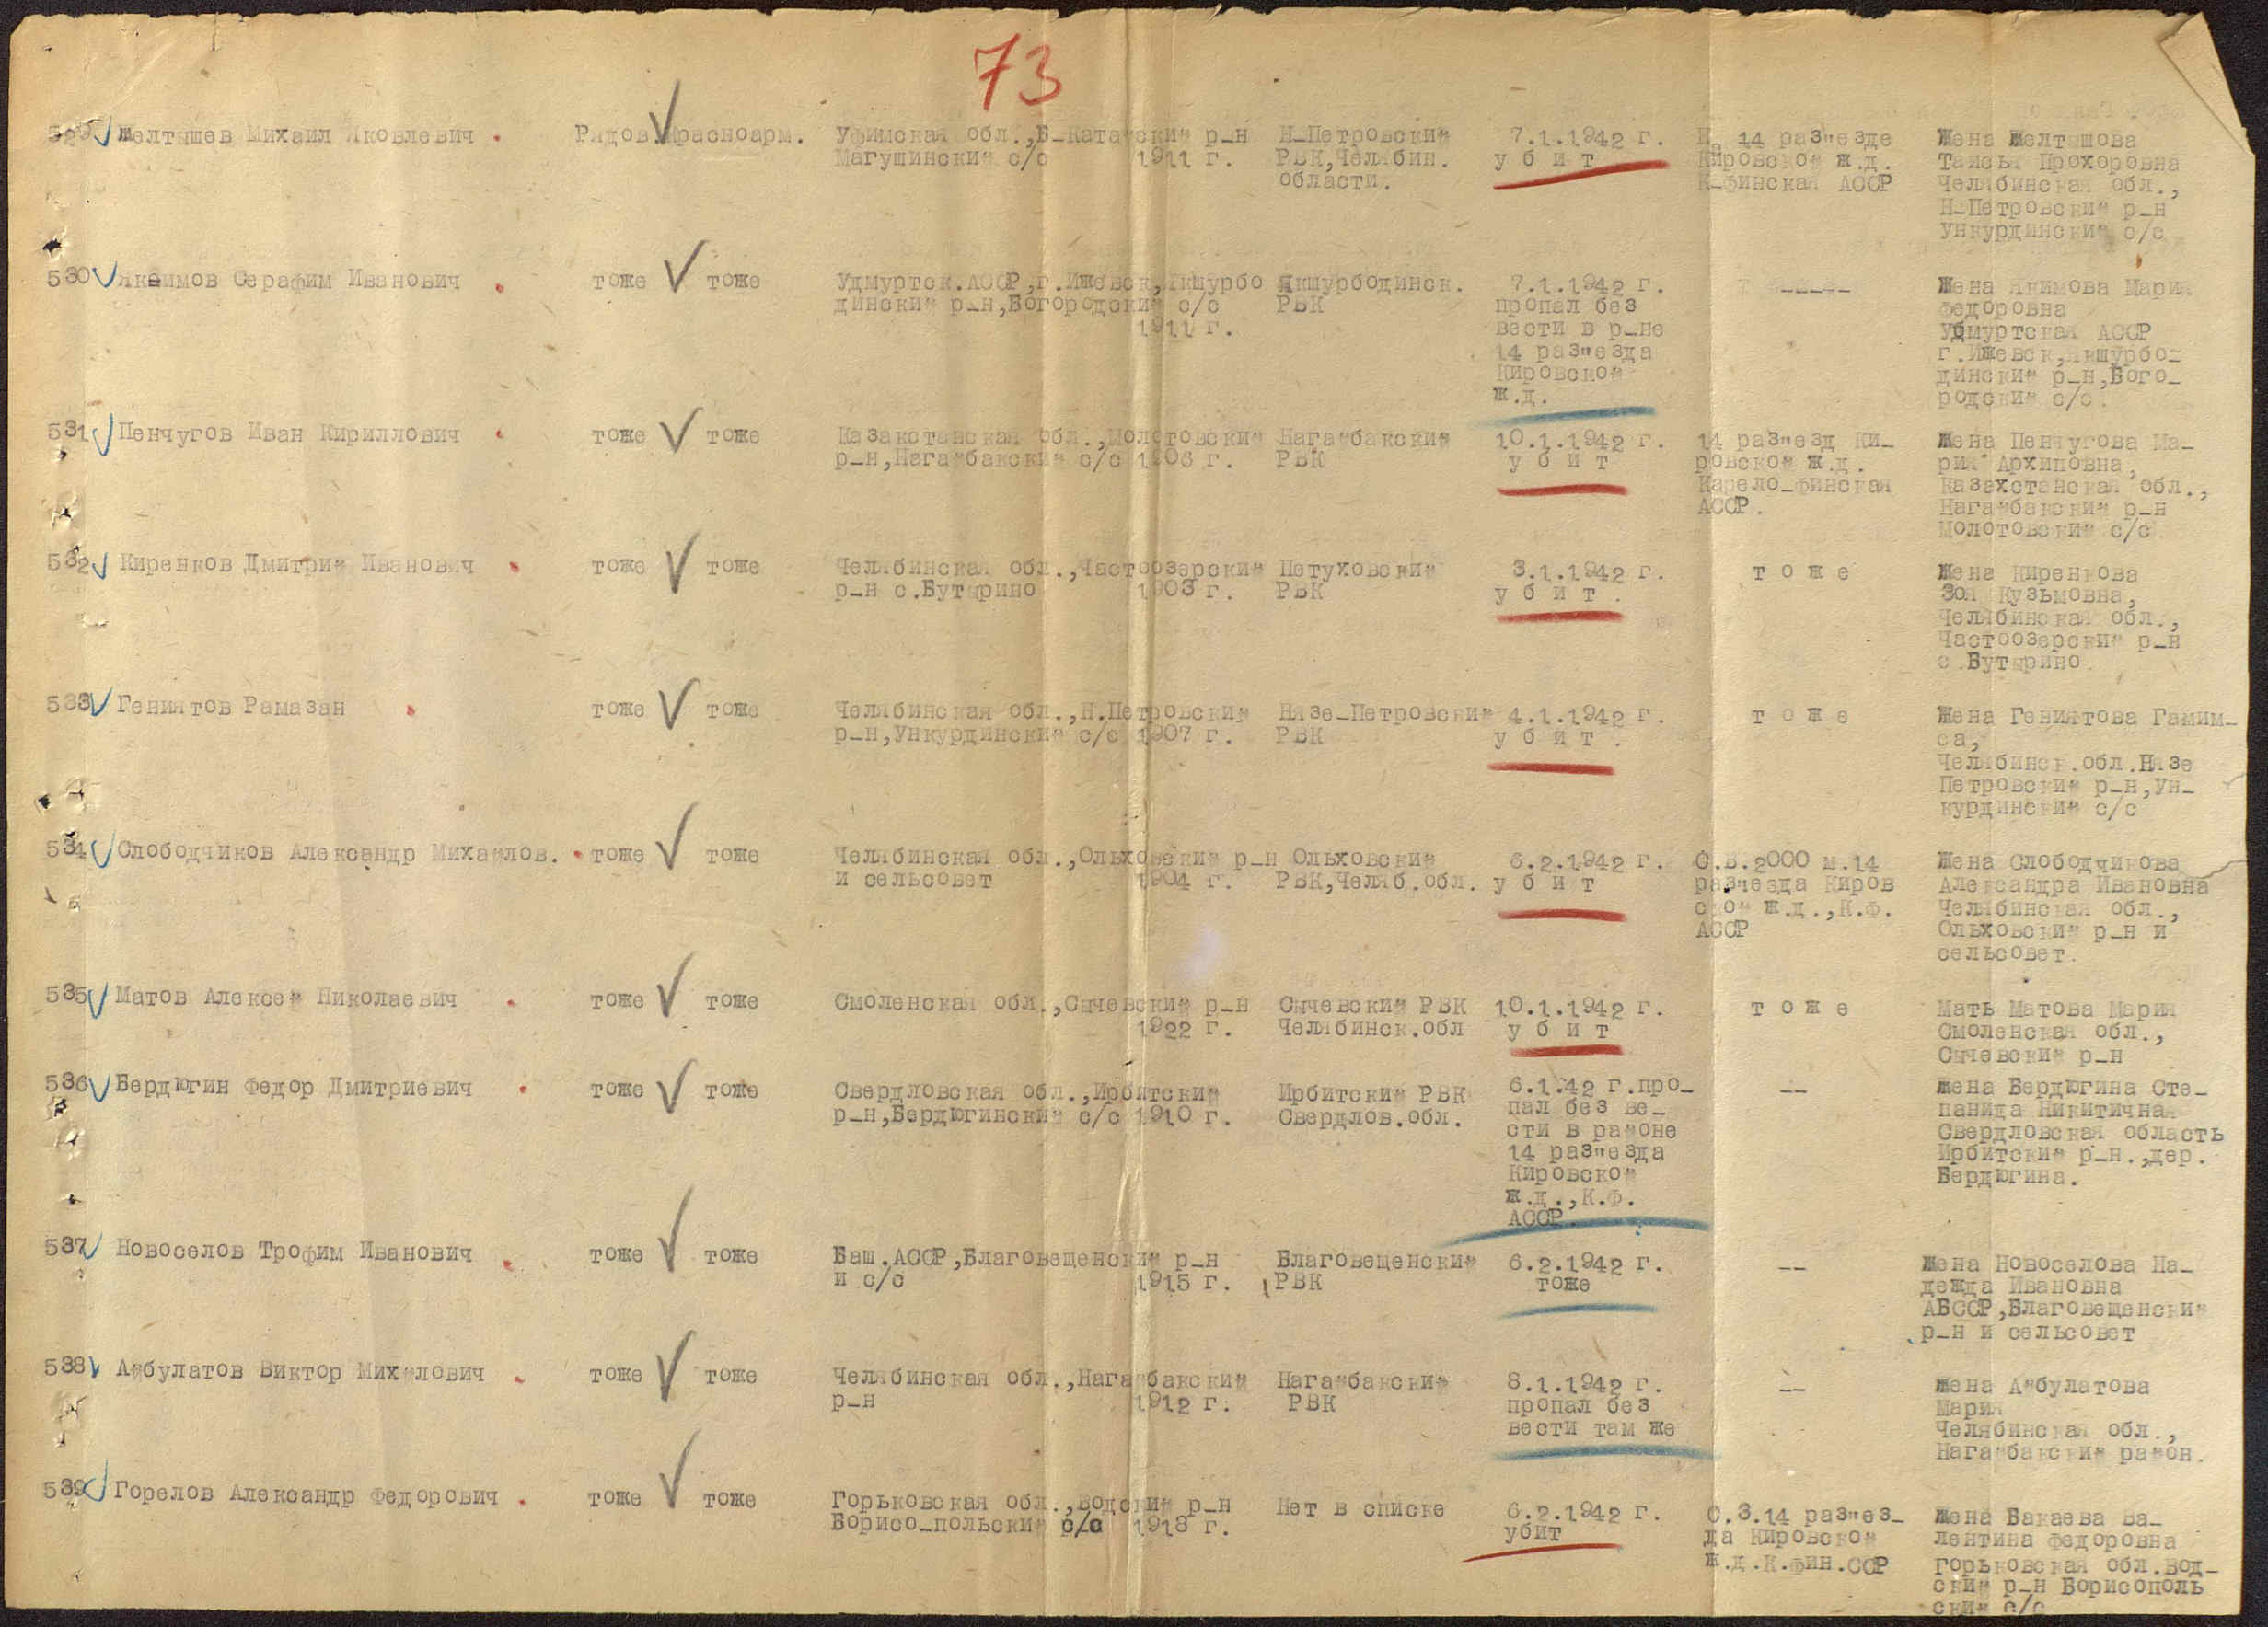 73
529 Желтышев Михаил Яковлевич. Рядов. Красноарм. Уфимская обл.,Б-Катайский р-н Н-Петровский 7.1.1942 г. 14 раз"езде Жена Желтышова
Магушинский с/с 1911 г. РВК,Челябин. убит Кировской ж.д. Таисья Прохоровна
области. К-финская АССР Челябинская обл.,
Н-Петровский р-н
Ункурдинский с/с
530 Якимов Серафим Иванович. тоже тоже Удмуртск.АССР,г.Ижевск,Якшурбо Якшурбодинск. 7.1.1942 г. Жена Якимова Мария
динский р-н,Богородский с/с РВК пропал без федоровна
1911 г. вести в р-не Удмуртская АССР
14 раз"езда г.Ижевск,Якшурбо-
Кировской динский р-н,Бого-
ж.д. родский с/с.
531 Пенчугов Иван Кириллович. тоже тоже Казакстанская обл.,Молотовский Нагайбакский 10.1.1942 г. 14 раз"езд Ки- Жена Пенчугова Ма-
р-н,Нагайбакский с/с 1906 г. РВК убит ровской ж.д. рия Архиповна,
Карело-финская Казахстанская обл.,
АССР. Нагайбакский р-н
Молотовский с/с
532 Киренков Дмитрий Иванович. тоже тоже Челябинская обл.,Частоозерский Петуховский 3.1.1942 г. тоже Жена Киренкова
р-н с.Бутырино 1903 г. РВК убит. Зоя Кузьмовна,
Челябинская обл.,
Частоозерский р-н
с.Бутырино.
533 Гениятов Рамазан. тоже тоже Челябинская обл.,Н.Петровский Нязе-Петровский 4.1.1942 г. тоже Жена Гениятова Гамим-
р-н,Ункурдинский с/с 1907 г. РВК убит. са,
Челябинск.обл.Нязе
Петровский р-н,Ун-
курдинский с/с
534 Слободчиков Александр Михайлов. тоже тоже Челябинская обл.,Ольховский р-н Ольховский 6.2.1942 г. С.В.2000 м.14 Жена Слободчикова
и сельсовет 1904 г. РВК,Челяб.обл. убит раз"езда Киров Александра Ивановна
ской ж.д.,К.ф. Челябинская обл.,
АССР Ольховский р-н и
сельсовет.
535 Матов Алексей Николаевич. тоже тоже Смоленская обл.,Сычевский р-н Сычевский РВК 10.1.1942 г. тоже Мать Матова Мария
1922 г. Челябинск.обл убит Смоленская обл.,
Сычевский р-н
536 Бердюгин Федор Дмитриевич. тоже тоже Свердловская обл.,Ирбитский Ирбитский РВК 6.1.42 г.про- -- Жена Бердюгина Сте-
р-н,Бердюгинский с/с 1910 г. Свердлов.обл. пал без ве- панида Никитична
сти в районе Свердловская область
14 раз"езда Ирбитский р-н.,дер.
Кировской Бердюгина.
ж.д.,К.ф.
АССР.
537 Новоселов Трофим Иванович. тоже тоже Баш.АССР,Благовещенский р-н Благовещенский 6.2.1942 г. -- Жена Новоселова На-
и с/с 1915 г. РВК тоже дежда Ивановна
АБССР,Благовещенский
р-н и сельсовет
538 Айбулатов Виктор Михйлович. тоже тоже Челябинская обл.,Нагайбакский Нагайбакский 8.1.1942 г. -- Жена Айбулатова
р-н 1912 г. РВК пропал без Мария
вести там же Челябинская обл.,
Нагайбакский район.
539 Горелов Александр Федорович. тоже тоже Горьковская обл.,Водский р-н Нет в списке 6.2.1942 г. С.З.14 раз"ез- Жена Бакаева Ва-
Борисо-польский с/с 1918 г. убит да Кировской лентина федоровна
ж.д.К.фин.ССР Горьковская обл.Вод-
ский р-н Борисополь
ский с/с